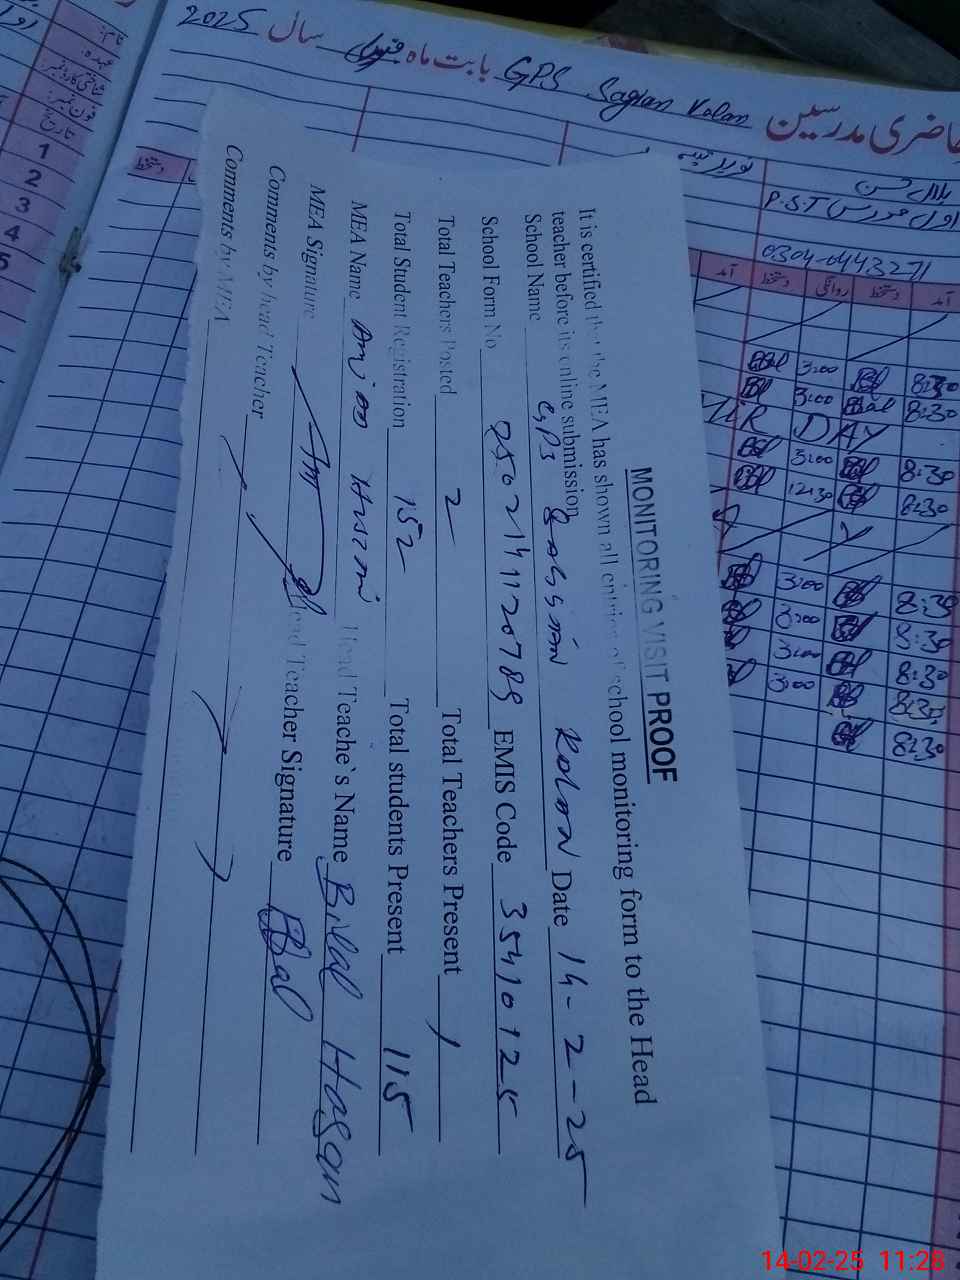 حاضری مدرسین GPS Sagian Kalan بابت ماہ فروری سال 2025
بلال حسن
اول مدرس P.S.T
0304-0443271
آمد دستخط روانگی دستخط آمد
دستخط
8:30 3:00
8:30 3:00
DAY
8:30 3:00
8:30 12:30
8:30 3:00
8:30 3:00
8:30 3:00
8:30 3:00
8:30
نام:
عہدہ:
شناختی کارڈ نمبر:
فون نمبر:
تاریخ
1
2
3
4
5
MONITORING VISIT PROOF
It is certified that the MEA has shown all entries of school monitoring form to the Head
teacher before its online submission
School Name GPS Kalan Date 14-2-25
School Form No EMIS Code 35410125
Total Teachers Posted 2 Total Teachers Present 1
Total Student Registration 152 Total students Present 115
MEA Name Head Teache`s Name Bilal Hasan
MEA Signature Head Teacher Signature
Comments by head Teacher
Comments by MEA
14-02-25 11:28